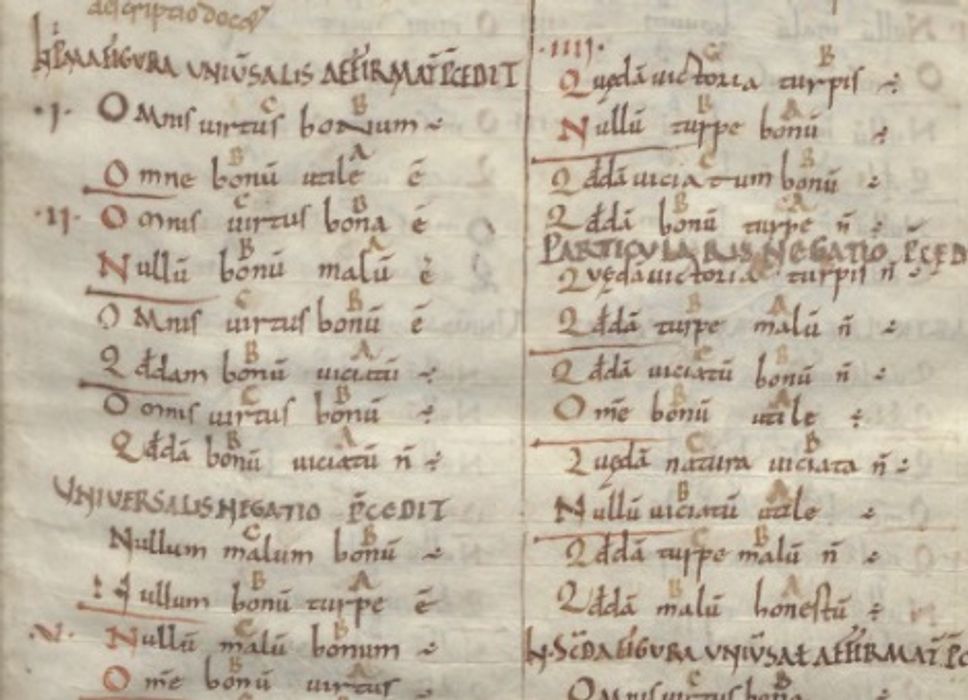 descriptio docet
H PMA FIGURA UNIUSALIS AFFIRMAT PCEDIT
C B
·I· Omnis uirtus bonum ÷
B A
Omne bonū utile ē
C B
·II· Omnis uirtus bona ē
B A
Nullū bonū malū ē
C B
OMnis uirtus bonū ē
B A
Qddam bonū uiciatū ÷
C B
Omnis uirtus bonū ÷
B A
Qddā bonū uiciatū n̄ ÷
UNIVERSALIS NEGATIO P̄CEDIT
C B
Nullum malum bonū ÷
B A
Nullum bonū turpe ē
C B
·V· Nullū malū bonum ÷
B A
Om̄e bonū uirtus ÷
·IIII·
C B
Quędā uictoria turpis ÷
B A
Nullū turpe bonū ÷
C B
Qddā uiciatum bonū ÷
B A
Qddā bonū turpe n̄ ÷
PARTICULARIS NEGATIO P̄CED
Quędā uictoria turpis n̄ ÷
B A
Qddā turpe malū n̄ ÷
C B
Qddā uiciatū bonū n̄ ÷
B A
Om̄e bonū utile ÷
C B
Quędā natura uiciata n̄ ÷
B A
Nullū uiciatū utile ÷
C B
Qddā turpe malū n̄ ÷
B A
Qddā malū honestū ÷
H SC̄DA FIGURA UNIUSAL AFFIRMAT P̄C
C B
OMnis uirtus bona